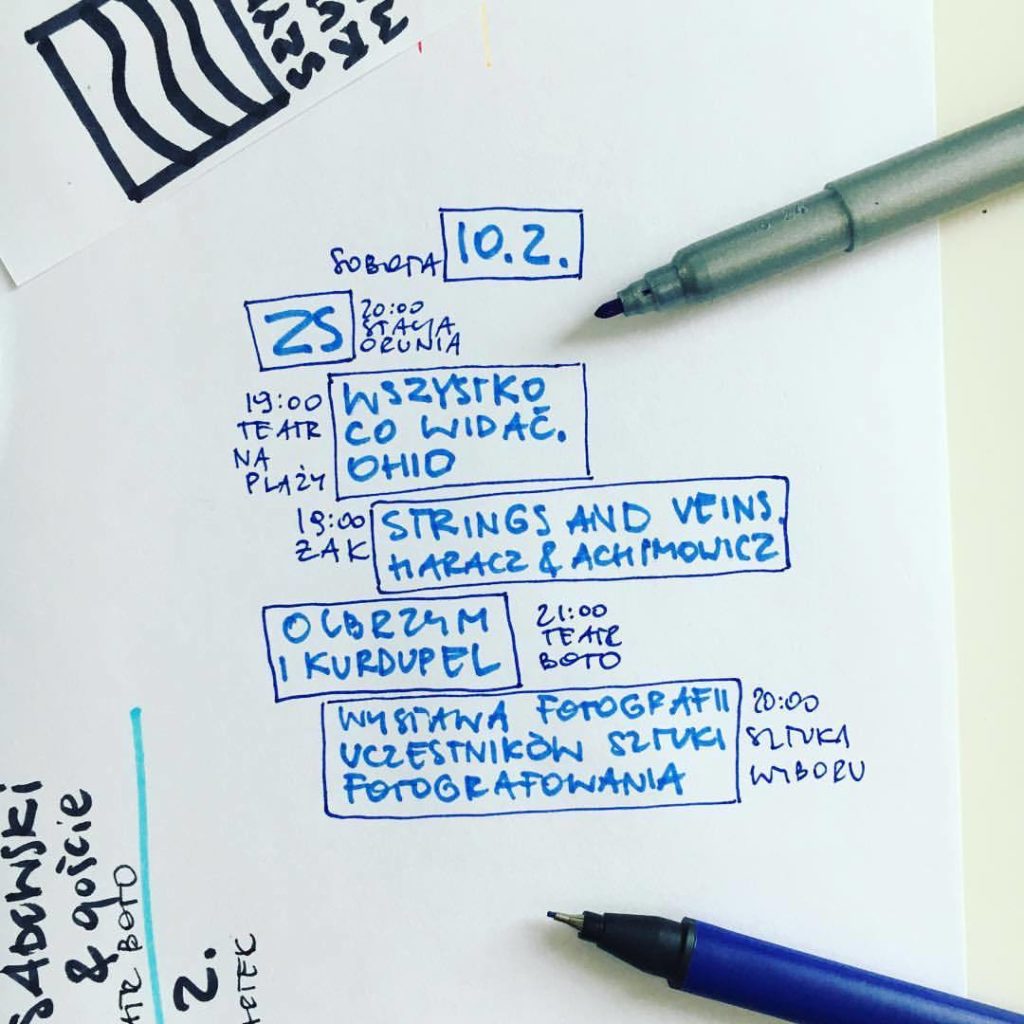 SOBOTA 10.2.
ZS
20:00
STACJA
ORUNIA
19:00
TEATR
NA
PLAŻY
WSZYSTKO
CO WIDAĆ.
OHIO
19:00
ŻAK
STRINGS AND VEINS.
HARACZ & ACHIMOWICZ
OLBRZYM
I KURDUPEL
21:00
TEATR
BOTO
WYSTAWA FOTOGRAFII
UCZESTNIKÓW SZTUKI
FOTOGRAFOWANIA
20:00
SZTUKA
WYBORU
SADOWSKI
& goście
BOTO
2.